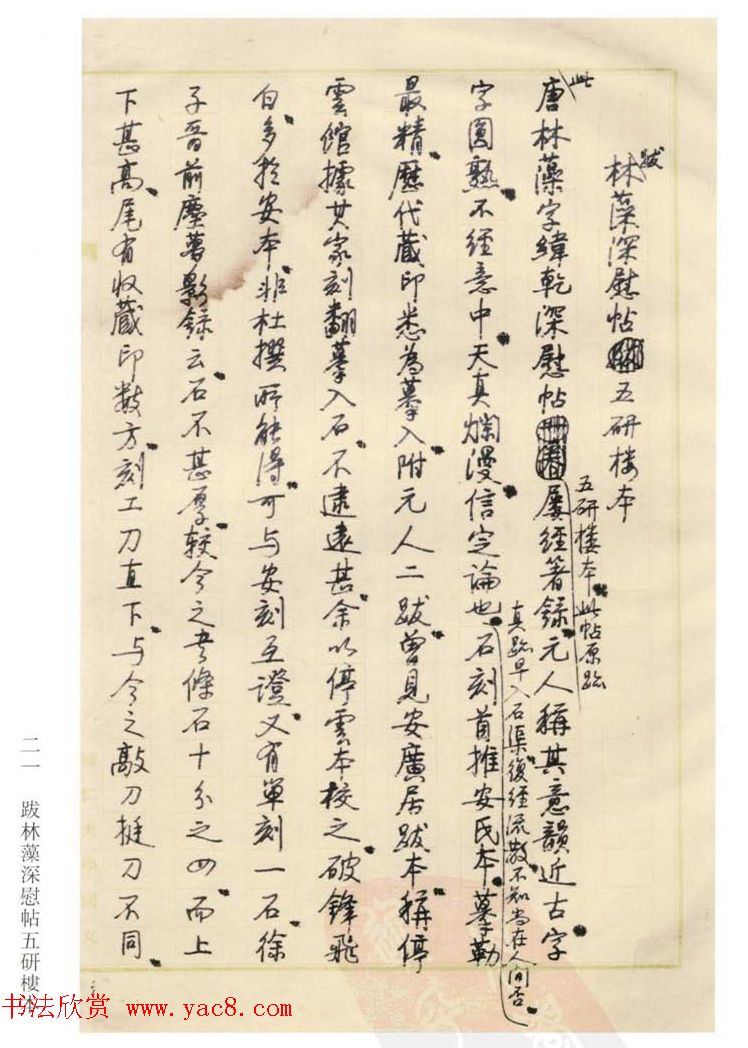 跋
林藻深慰帖五研楼本
此
唐林藻字緯乾深慰帖屡經著録元人稱其意韻近古字
五研樓本此帖原跡
字圓熟不經意中天真爛漫信定論也石刻首推安氏本摹勒
真跡早入石渠復經流散不知尚在人间否
最精歷代藏印悉為摹入附元人二跋曾見安廣居跋本稱停
雲館據其家刻翻摹入石不逮遠甚余以停雲本校之破鋒飛
白多於安本非杜撰所能得可与安刻互證又有單刻一石徐
子晋前塵夢影録云石不甚厚較今之書條石十分之四而上
下甚高尾有收藏印数方刻工刀直下与今之敲刀挺刀不同
二一 跋林藻深慰帖五研樓本
书法欣赏 www.yac8.com